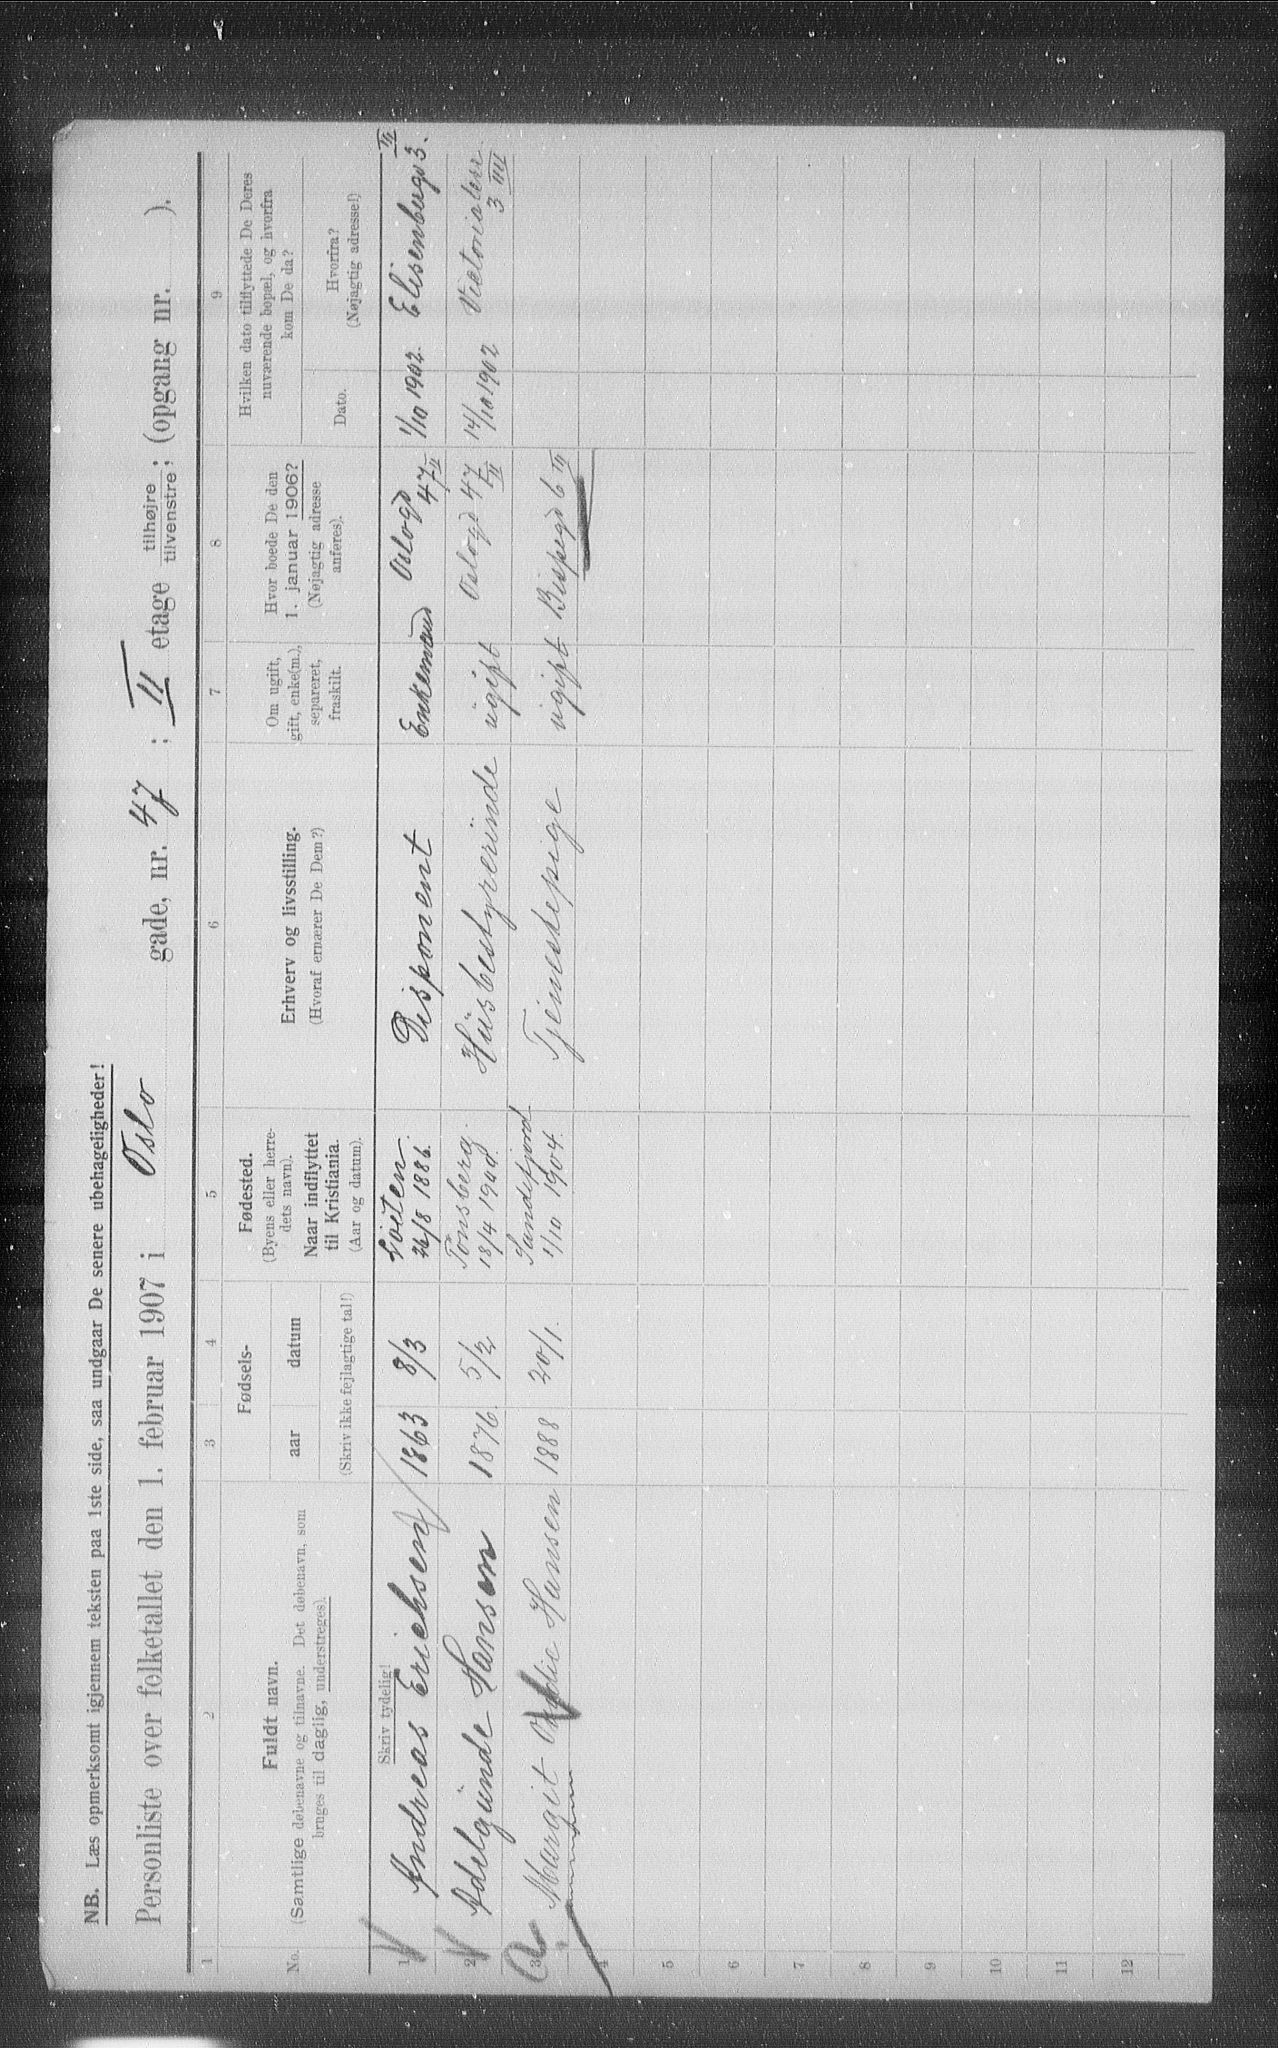 NB. Læs opmerksomt igjennem teksten paa 1ste side, saa undgaar De senere ubehageligheder!
Personliste over folketallet den 1. februar 1907 i Oslo gade, nr. 47 ; II etage tilhøjre / tilvenstre; (opgang nr. ).
1 2 3 4 5 6 7 8 9
No.
Fuldt navn.
(Samtlige døbenavne og tilnavne. Det døbenavn, som
bruges til daglig, understreges).
Skriv tydelig!
Fødsels-
aar datum
(Skriv ikke fejlagtige tal!)
Fødested.
(Byens eller herre-
dets navn).
Naar indflyttet
til Kristiania.
(Aar og datum).
Erhverv og livsstilling.
(Hvoraf ernærer De Dem?)
Om ugift,
gift, enke(m.),
separeret,
fraskilt.
Hvor boede De den
1. januar 1906?
(Nøjagtig adresse
anføres).
Hvilken dato tilflyttede De Deres
nuværende bopæl, og hvorfra
kom De da?
Dato.
Hvorfra?
(Nøjagtig adresse!)
1 Andreas Erichsen 1863 8/3 Løiten 26/8 1886. Disponent Enkemand Oslogd 47 II 1/10 1902. Elisenbugd 3. II
2 Adelgunde Hansen 1876. 5/2 Tønsberg. 18/4 1900. Husbestyrerinde ugift Oslogd 47 II 14/10 1902 Victorialerr. 3 III
3 Margit Hansen 1888 20/1. Sandefjord 1/10 1904. Tjenestepige ugift Bispegd 6 III
4
5
6
7
8
9
10
11
12